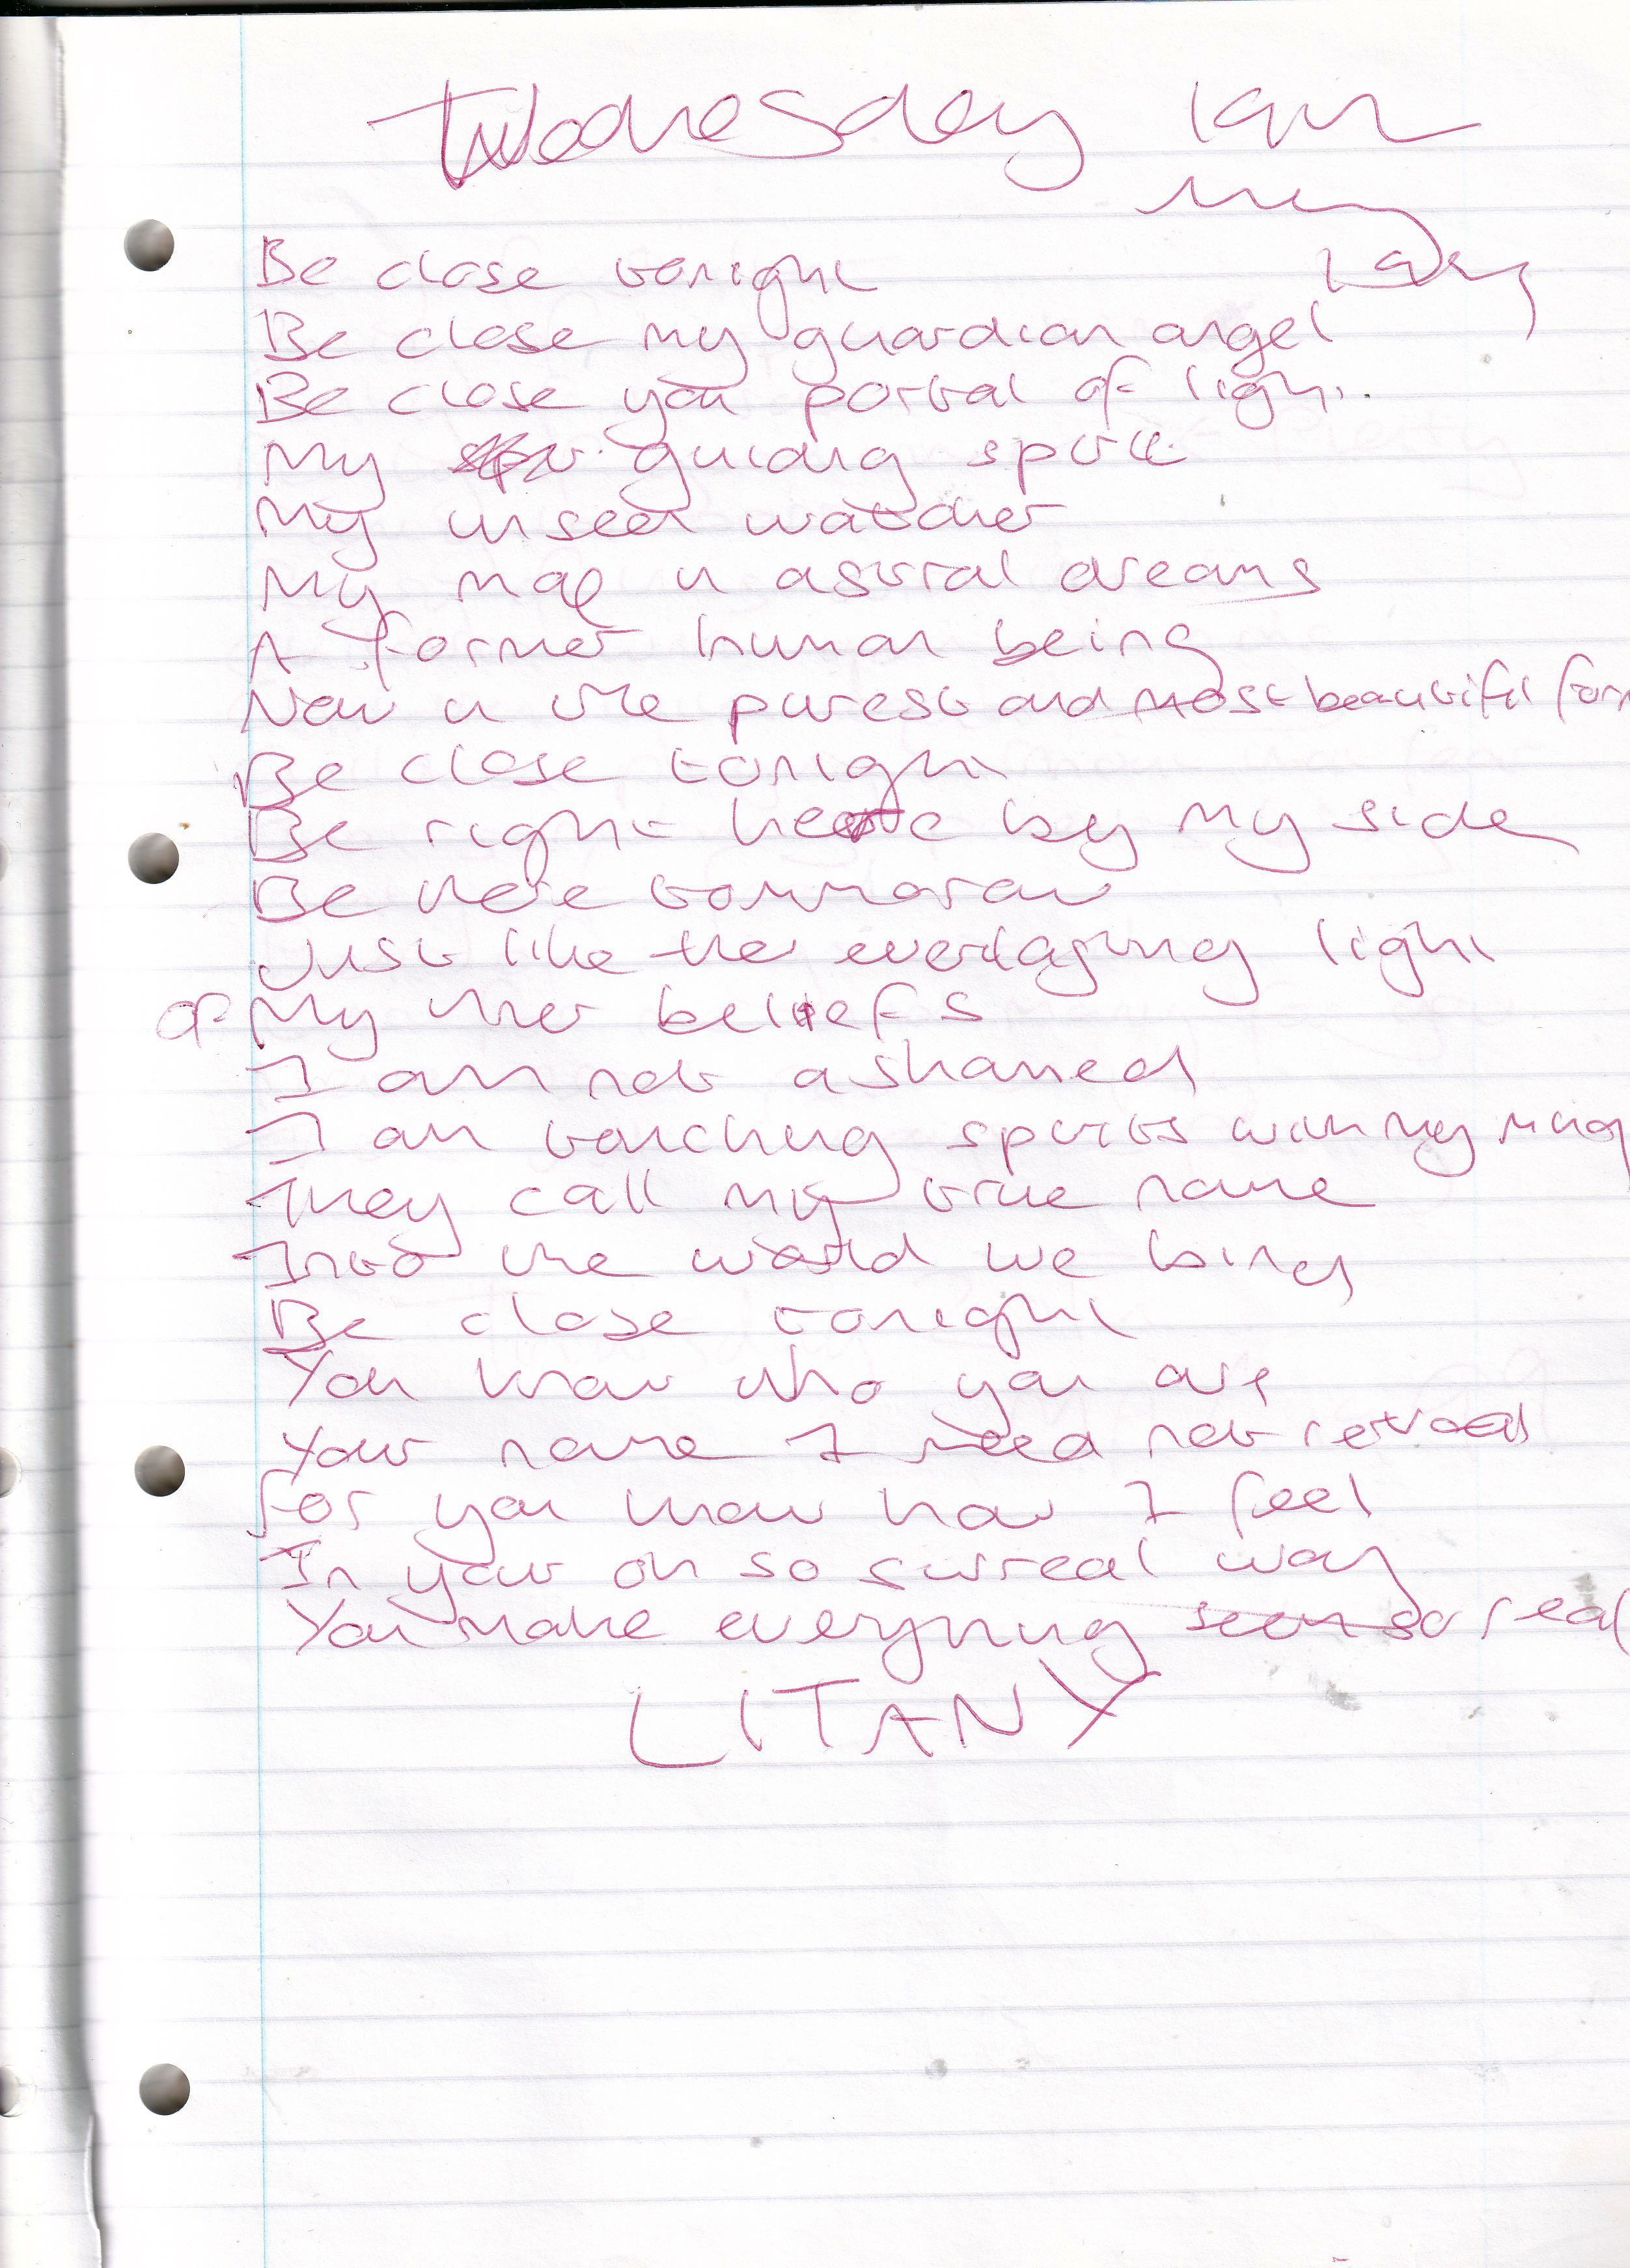 Wednesday 1am
Be close tonight
Be close my guardian angel
Be close you portal of light
My guiding spirit
My unseen watcher
My map in astral dreams
A former human being
Now in the purest and most beautiful form
Be close tonight
Be right here by my side
Be here tommorow
Just like the everlasting light
of My inner beliefs
I am not ashamed
I am touching spirits with my mind
They call my true name
Into the world we bind
Be close tonight
You know who you are
Your name I need not reveal
For you know how I feel
In your oh so surreal way
You make everything seem so real
LITANY